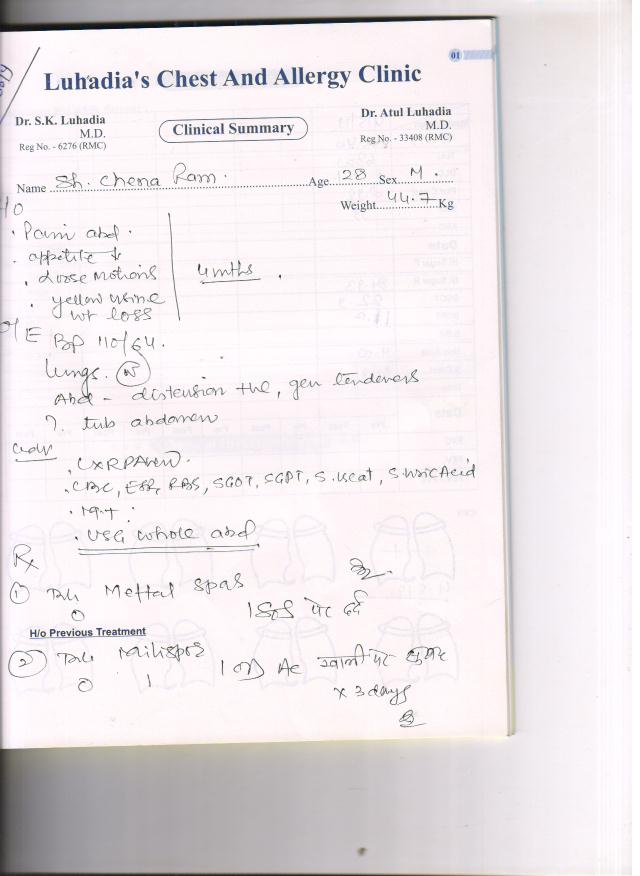 01
Luhadia's Chest And Allergy Clinic
Dr. S.K. Luhadia
M.D.
Reg No. - 6276 (RMC)
Clinical Summary
Dr. Atul Luhadia
M.D.
Reg No. - 33408 (RMC)
Name Sh. Chena Ram. Age 28 Sex M.
Weight 44.7 Kg
. Pain abd.
. appetite ↓
. Loose Motions
. yellow urine
wt loss
4 mths.
O/E BP 110/64.
Lungs. (N)
Abd - distension +ve, gen tenderness
?. tub abdomen
Adv
. CXR PA view.
. CBC, ESR, RBS, SGOT, SGPT, S. , S. Uric Acid
. M.T
. USG whole abd
Rx
① Tab Meftal spas
1 SOS पेट दर्द
H/o Previous Treatment
② Tab
1 OD AC खाली पेट सुबह
x 3 days